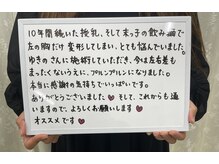 10年間続いた授乳、そして末っ子の飲み癖で
左の胸だけ変形してしまい、とても悩んでいました。
ゆきのさんに施術していただき、今は左右差も
まったくないうえに、プルンプルンになりました。
本当に感謝の気持ちでいっぱいです。
ありがとうございました♥ そして、これからも通
いますので、よろしくお願いします♥
オススメです♥